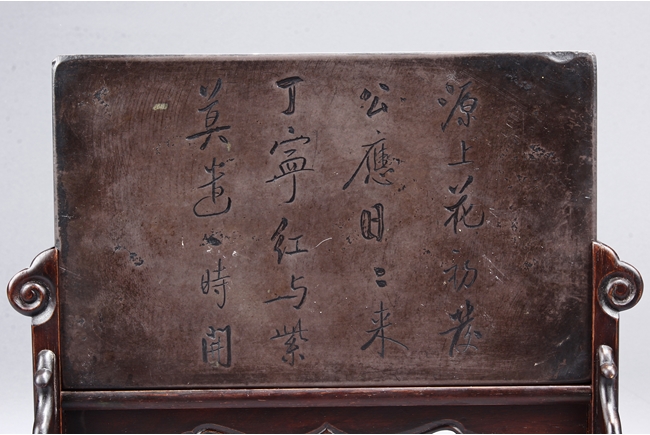 源上花初發
公應日〻来
丁寧紅与紫
莫遣一時開